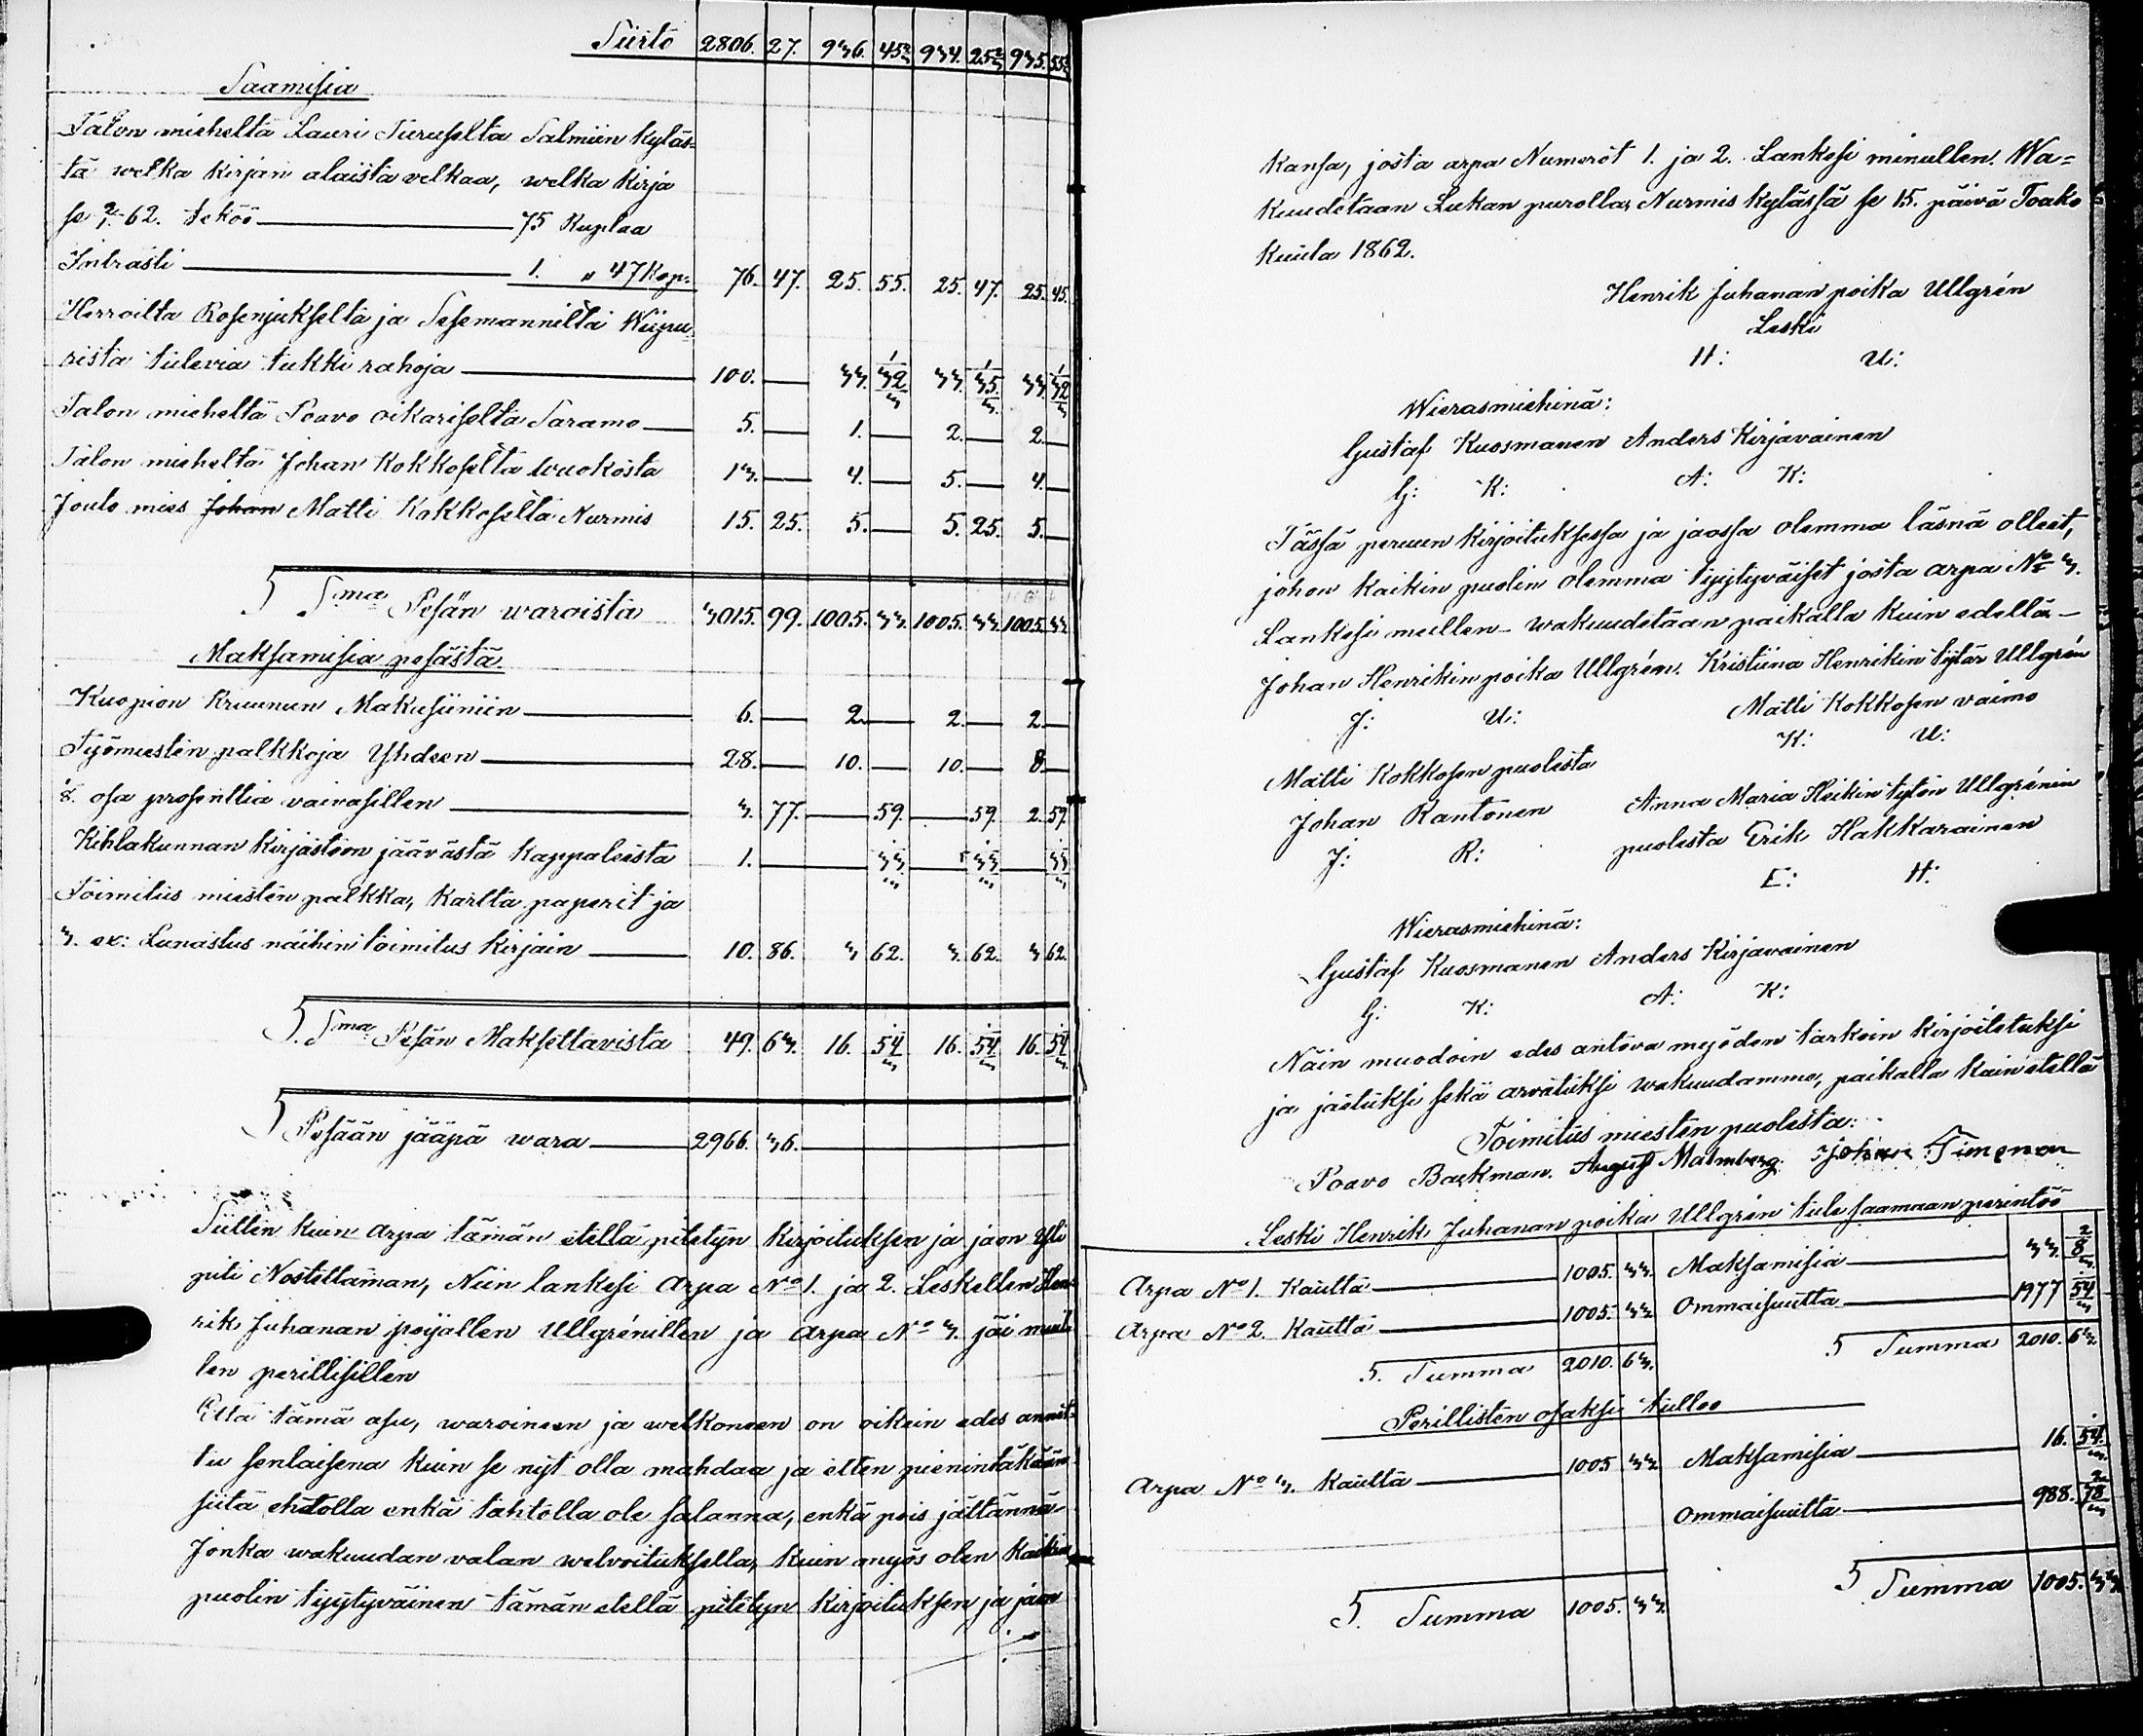 Siirto 2806. 27. 936. 45 2/3 934. 25 2/3 935. 55 2/3
Saamisia
Talon mieheltä Lauri Tiruselta Salmiin kyläs=
tä welka kirjan alaista velkaa, welka kirja
se 2/1 62. teköö — 75 Ruplaa
Intrasti — 1. " 47 Kop: 76. 47. 25. 55. 25. 47. 25. 45.
Herroilta Rosenjukselta ja Sesemannilta Wiipu=
rista tulevia tukki rahoja — 100. — 33. 32 1/3 33. 35 1/3 33. 32 1/3
Talon mieheltä Poavo oikariselta Saramo — 5. — 1. — 2. — 2. —
Talon mieheltä Johan Kokkoselta wuokosta 13. — 4. — 5. — 4. —
Joulo mies Johan Matti Kokkoselta Nurmis 15. 25. 5. — 5. 25. 5. —
S Sma Pesän waroista 3015. 99. 1005. 33. 1005. 33. 1005. 33
Maksamisia pesästä.
Kuopion Kruunun Makusiiniin — 6. — 2. — 2. — 2. —
Työmiesten palkkoja Yhdeen — 28. — 10. — 10. — 8. —
1/8. osa prosenttia vaivasillen — 3. 77. — 59. — 59. 2. 59.
Kihlakunnan kirjastoon jäävästä kappaleista 1. — 33 1/3 — 33 1/3 — 33 1/3
Toimitus miesten palkka, kartta paperit ja
3. ex: Lunastus näihin toimitus kirjain — 10. 86. 3 62. 3. 62. 3 62.
S. Sma Pesän Maksettavista 49. 63. 16. 54 1/3 16. 54 1/3 16. 54 1/3
S Pesään jääpä wara — 2966. 36. —
Sitten kuin Arpa tämän etellä pitetyn kirjoituksen ja jaon yli
piti Nostettaman, Niin lankesi Arpa No 1. ja 2. Leskellen Hen=
rik Juhanan poijallen Ullgrénillen ja arpa No 3. jäi muil=
len perillisillen
Että tämä asu, waroineen ja welkoneen on oikein edes annet=
tu senlaisena kuin se nyt olla mahdaa ja etten pienintäkään
siitä ehdolla enkä tahtolla ole salanna, enkä pois jättännä
Jonka wakuudan valan welvoituksella, kuin myös olen kaikin
puolin tyytyväinen tämän etellä pitetyn kirjoituksen ja jaon
kansa, josta arpa Numerot 1. ja 2. Lankesi minullen. Wa=
kuudetaan Lukan purolla, Nurmis kylässä se 15. päivä Toako
kuuta 1862.
Henrik Juhanan poika Ullgrén
Leski
H: U:
Wierasmiehinä:
Gustaf Kuosmanen Anders Kirjavainen
G: K: A: K:
Tässä peruun kirjoituksessa ja jaossa olemma läsnä olleet,
johon kaikin puolin olemma tyytyväiset josta arpa No 3.
Lankesi meillen – wakuudetaan paikalla kuin edellä –
Johan Henrikin poika Ullgrén. Kristiina Henrikin tytär Ullgrén
J: U: Matti Kokkosen vaimo
K: U:
Matti Kokkosen puolesta
Johan Rantonen Anna Maria Heikin tytön Ullgrénin
J: R: puolesta Erik Hakkarainen
E: H:
Wierasmiehinä:
Gustaf Kuosmanen Anders Kirjavainen
G: K: A: K:
Näin muodoin edes antova myöden tarkoin kirjoitetuksi
ja jaetuksi sekä arvatuksi wakuudamme, paikalla kuin etellä
Toimitus miesten puolesta:
Poavo Backman. August Malmberg. Johan Timonen
Leski Henrik Juhanan poika Ullgrén tule saamaan perintöö
Arpa No 1. Kautta — 1005. 33. Maksamisia — 33. 8 2/3
Arpa No 2. Kautta — 1005. 33. Ommaisuutta — 1977 54 1/3
S. Summa 2010. 63. S Summa 2010. 63.
Perillisten osaksi tulloo
Arpa No 3. Kautta — 1005 33. Maksamisia — 16. 54 1/3
Ommaisuutta — 988. 78 2/3
S. Summa 1005. 33. S Summa 1005. 33.